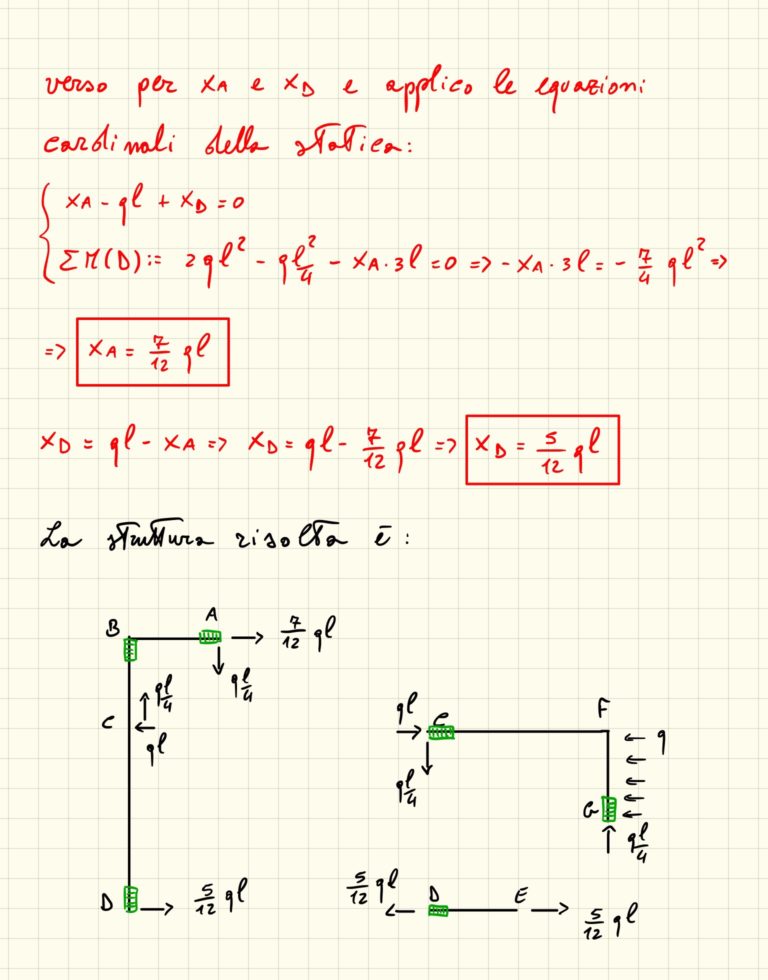 verso per XA e XD e applico le equazioni
cardinali della statica:
XA - ql + XD = 0
ΣM(D):= 2ql² - ql²/4 - XA·3l = 0 => -XA·3l = - 7/4 ql² =>
=> XA = 7/12 ql
XD = ql - XA => XD = ql - 7/12 ql => XD = 5/12 ql
La struttura risolta è:
B A → 7/12 ql
↓ ql/4
↑ ql/4
C ← ql
D → 5/12 ql
ql → C F
↓ ql/4
← q
G
↑ ql/4
5/12 ql ← D E → 5/12 ql